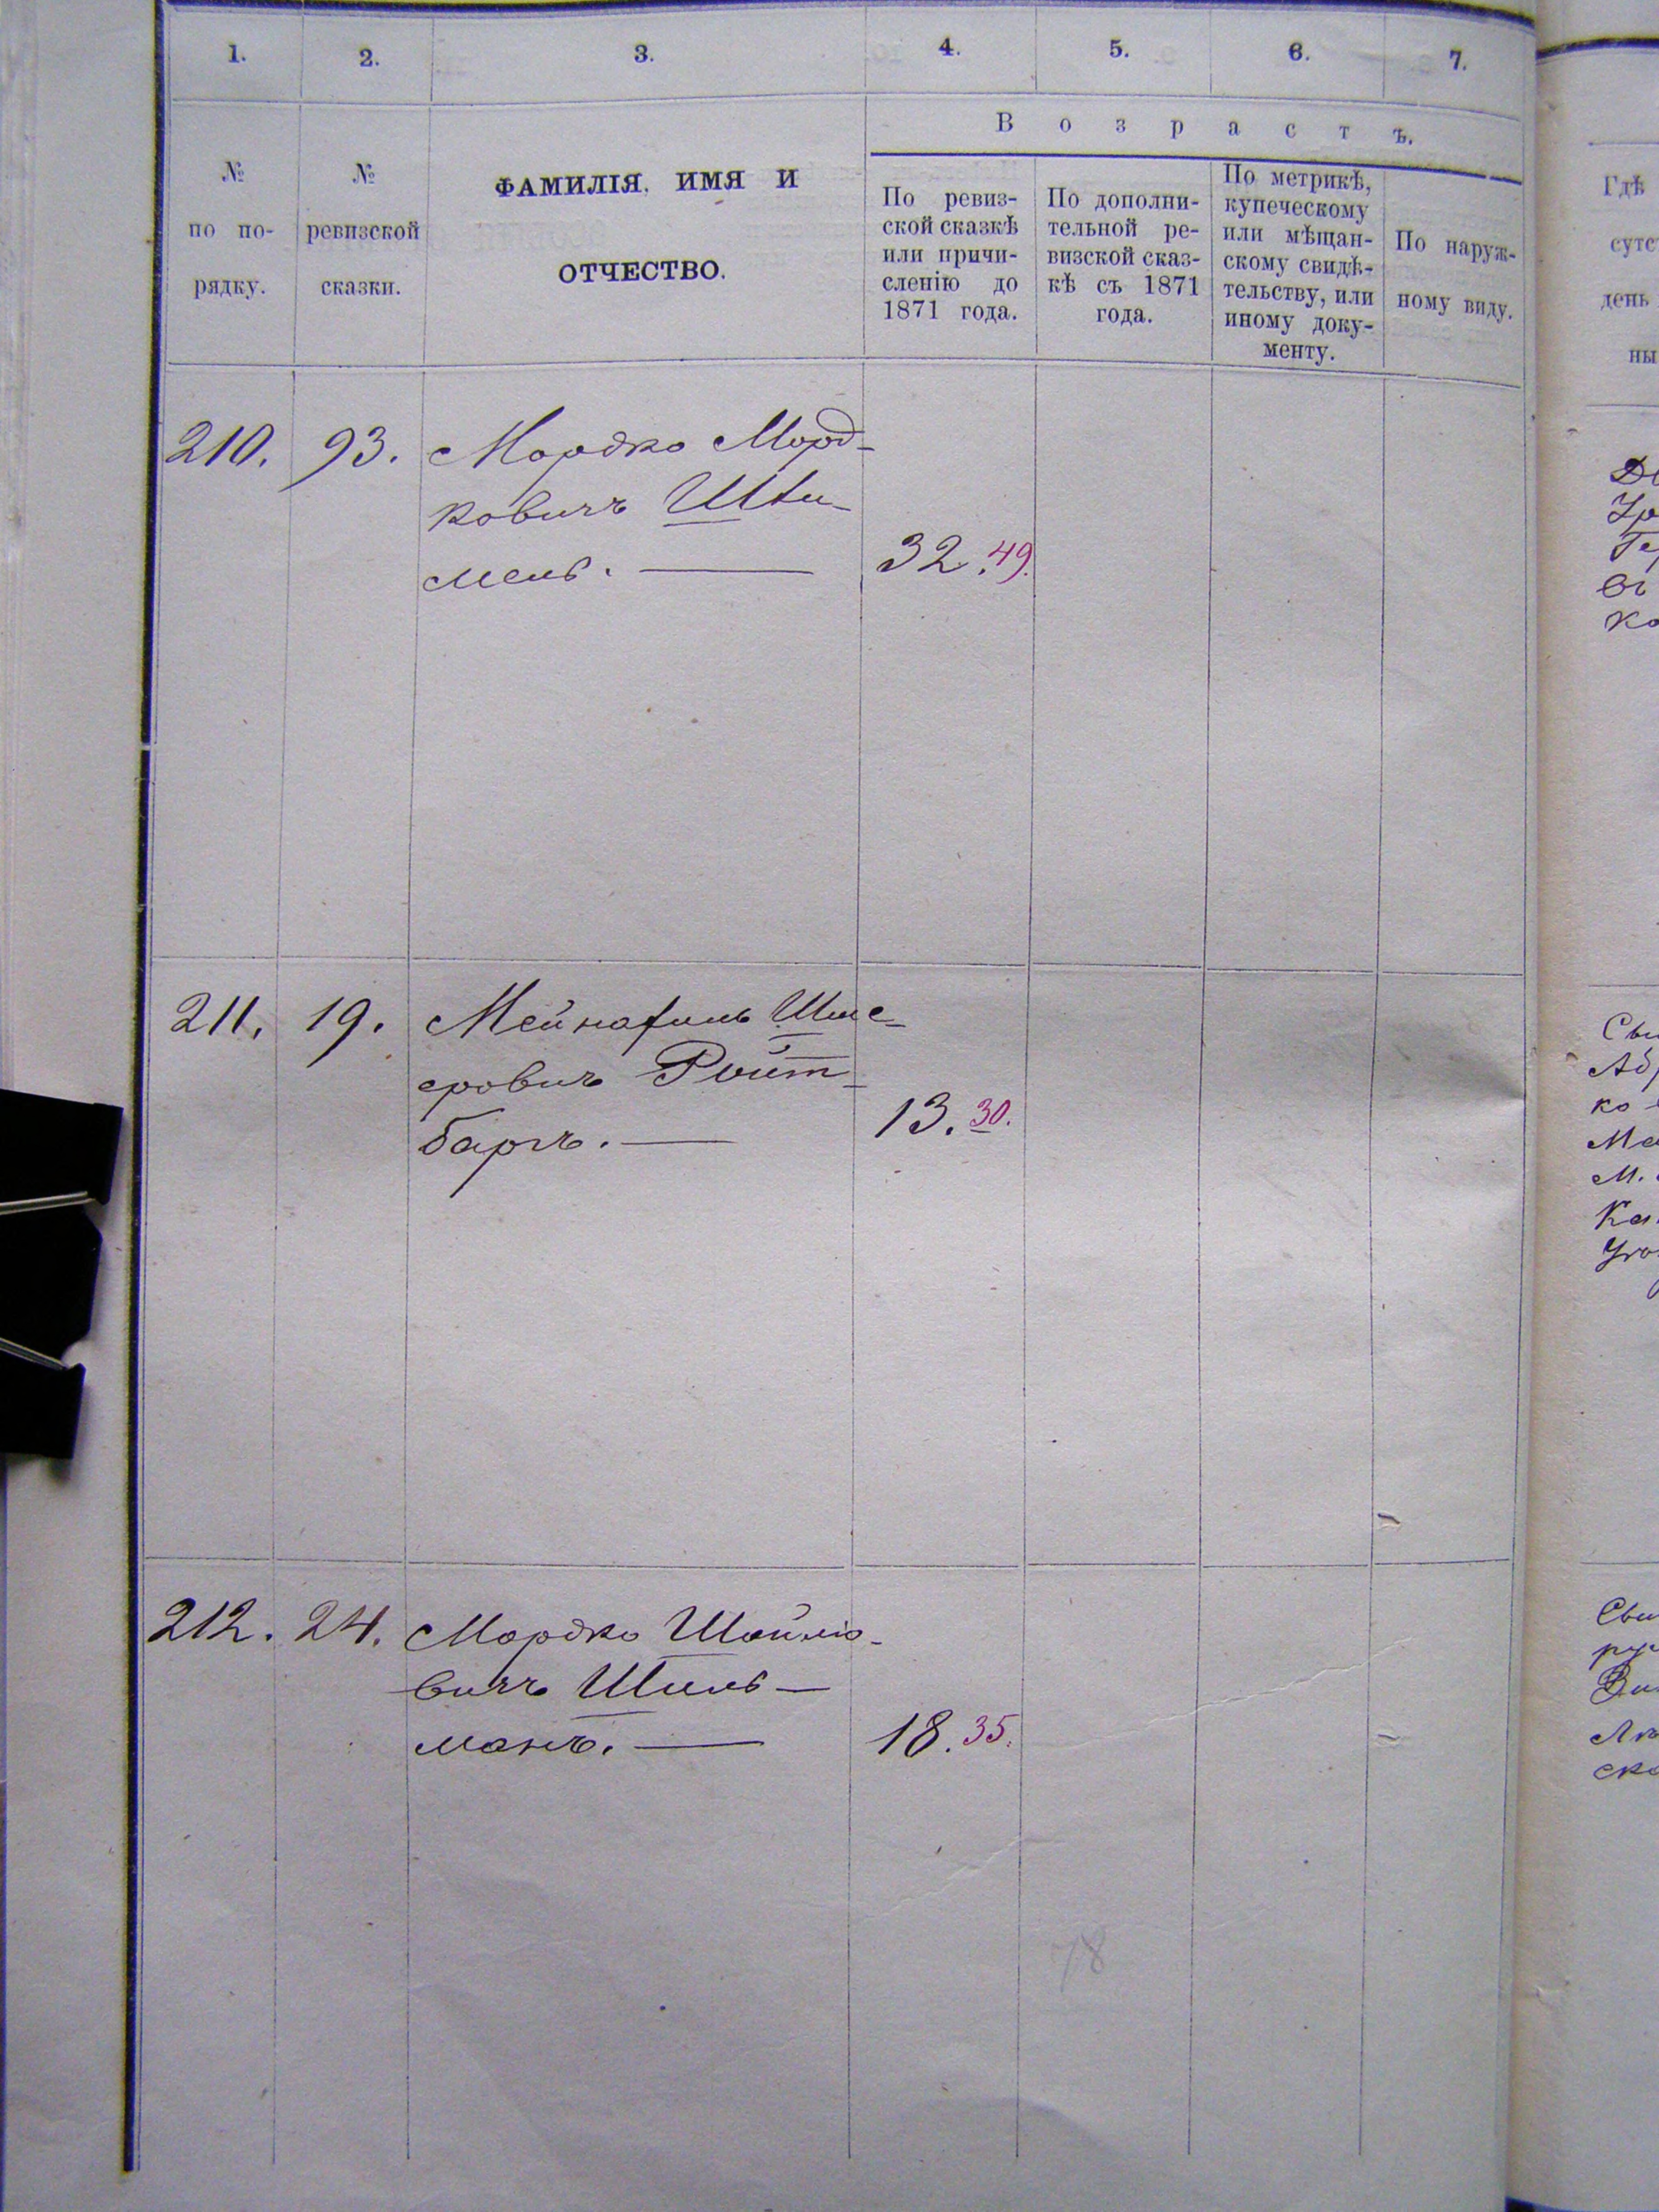 1. 2. 3. 4. 5. 6. 7.
№
по по-
рядку.
№
ревизской
сказки.
ФАМИЛІЯ, ИМЯ И
ОТЧЕСТВО.
Возрастъ.
По ревиз-
ской сказкѣ
или причи-
сленію до
1871 года.
По дополни-
тельной ре-
визской сказ-
кѣ съ 1871
года.
По метрикѣ,
купеческому
или мѣщан-
скому свидѣ-
тельству, или
иному доку-
менту.
По наруж-
ному виду.
Гдѣ
сутс
день
ны
210. 93. Мордко Морд-
ковичъ
мель. 32. 49.
211. 19.
еровичъ Ройт-
баргъ. 13. 30.
212. 24. Мордко Шойлю-
вичъ Шиль-
манъ. 18. 35.
78